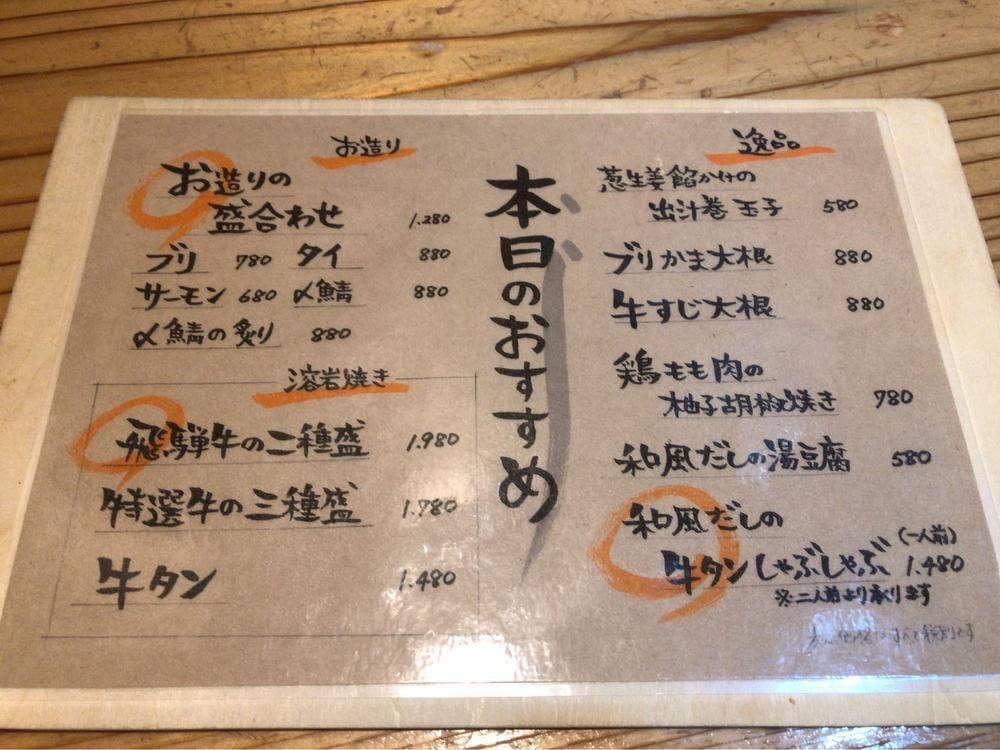 本日のおすすめ
お造り
お造りの
盛合わせ 1.280
ブリ 780 タイ 880
サーモン 680 〆鯖 880
〆鯖の炙り 880
溶岩焼き
飛騨牛の二種盛 1.980
特選牛の三種盛 1.780
牛タン 1.480
逸品
葱生姜餡かけの
出汁巻玉子 580
ブリかま大根 880
牛すじ大根 880
鶏もも肉の
柚子胡椒焼き 780
和風だしの湯豆腐 580
和風だしの
(一人前)
牛タンしゃぶしゃぶ 1.480
※二人前より承ります